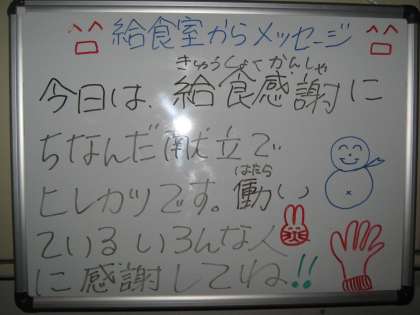 給食室からメッセージ
きゅうしょくかんしゃ
今日は、給食感謝に
ちなんだ献立で
はたら
ヒレカツです。働い
ているいろんな人
に感謝してね!!